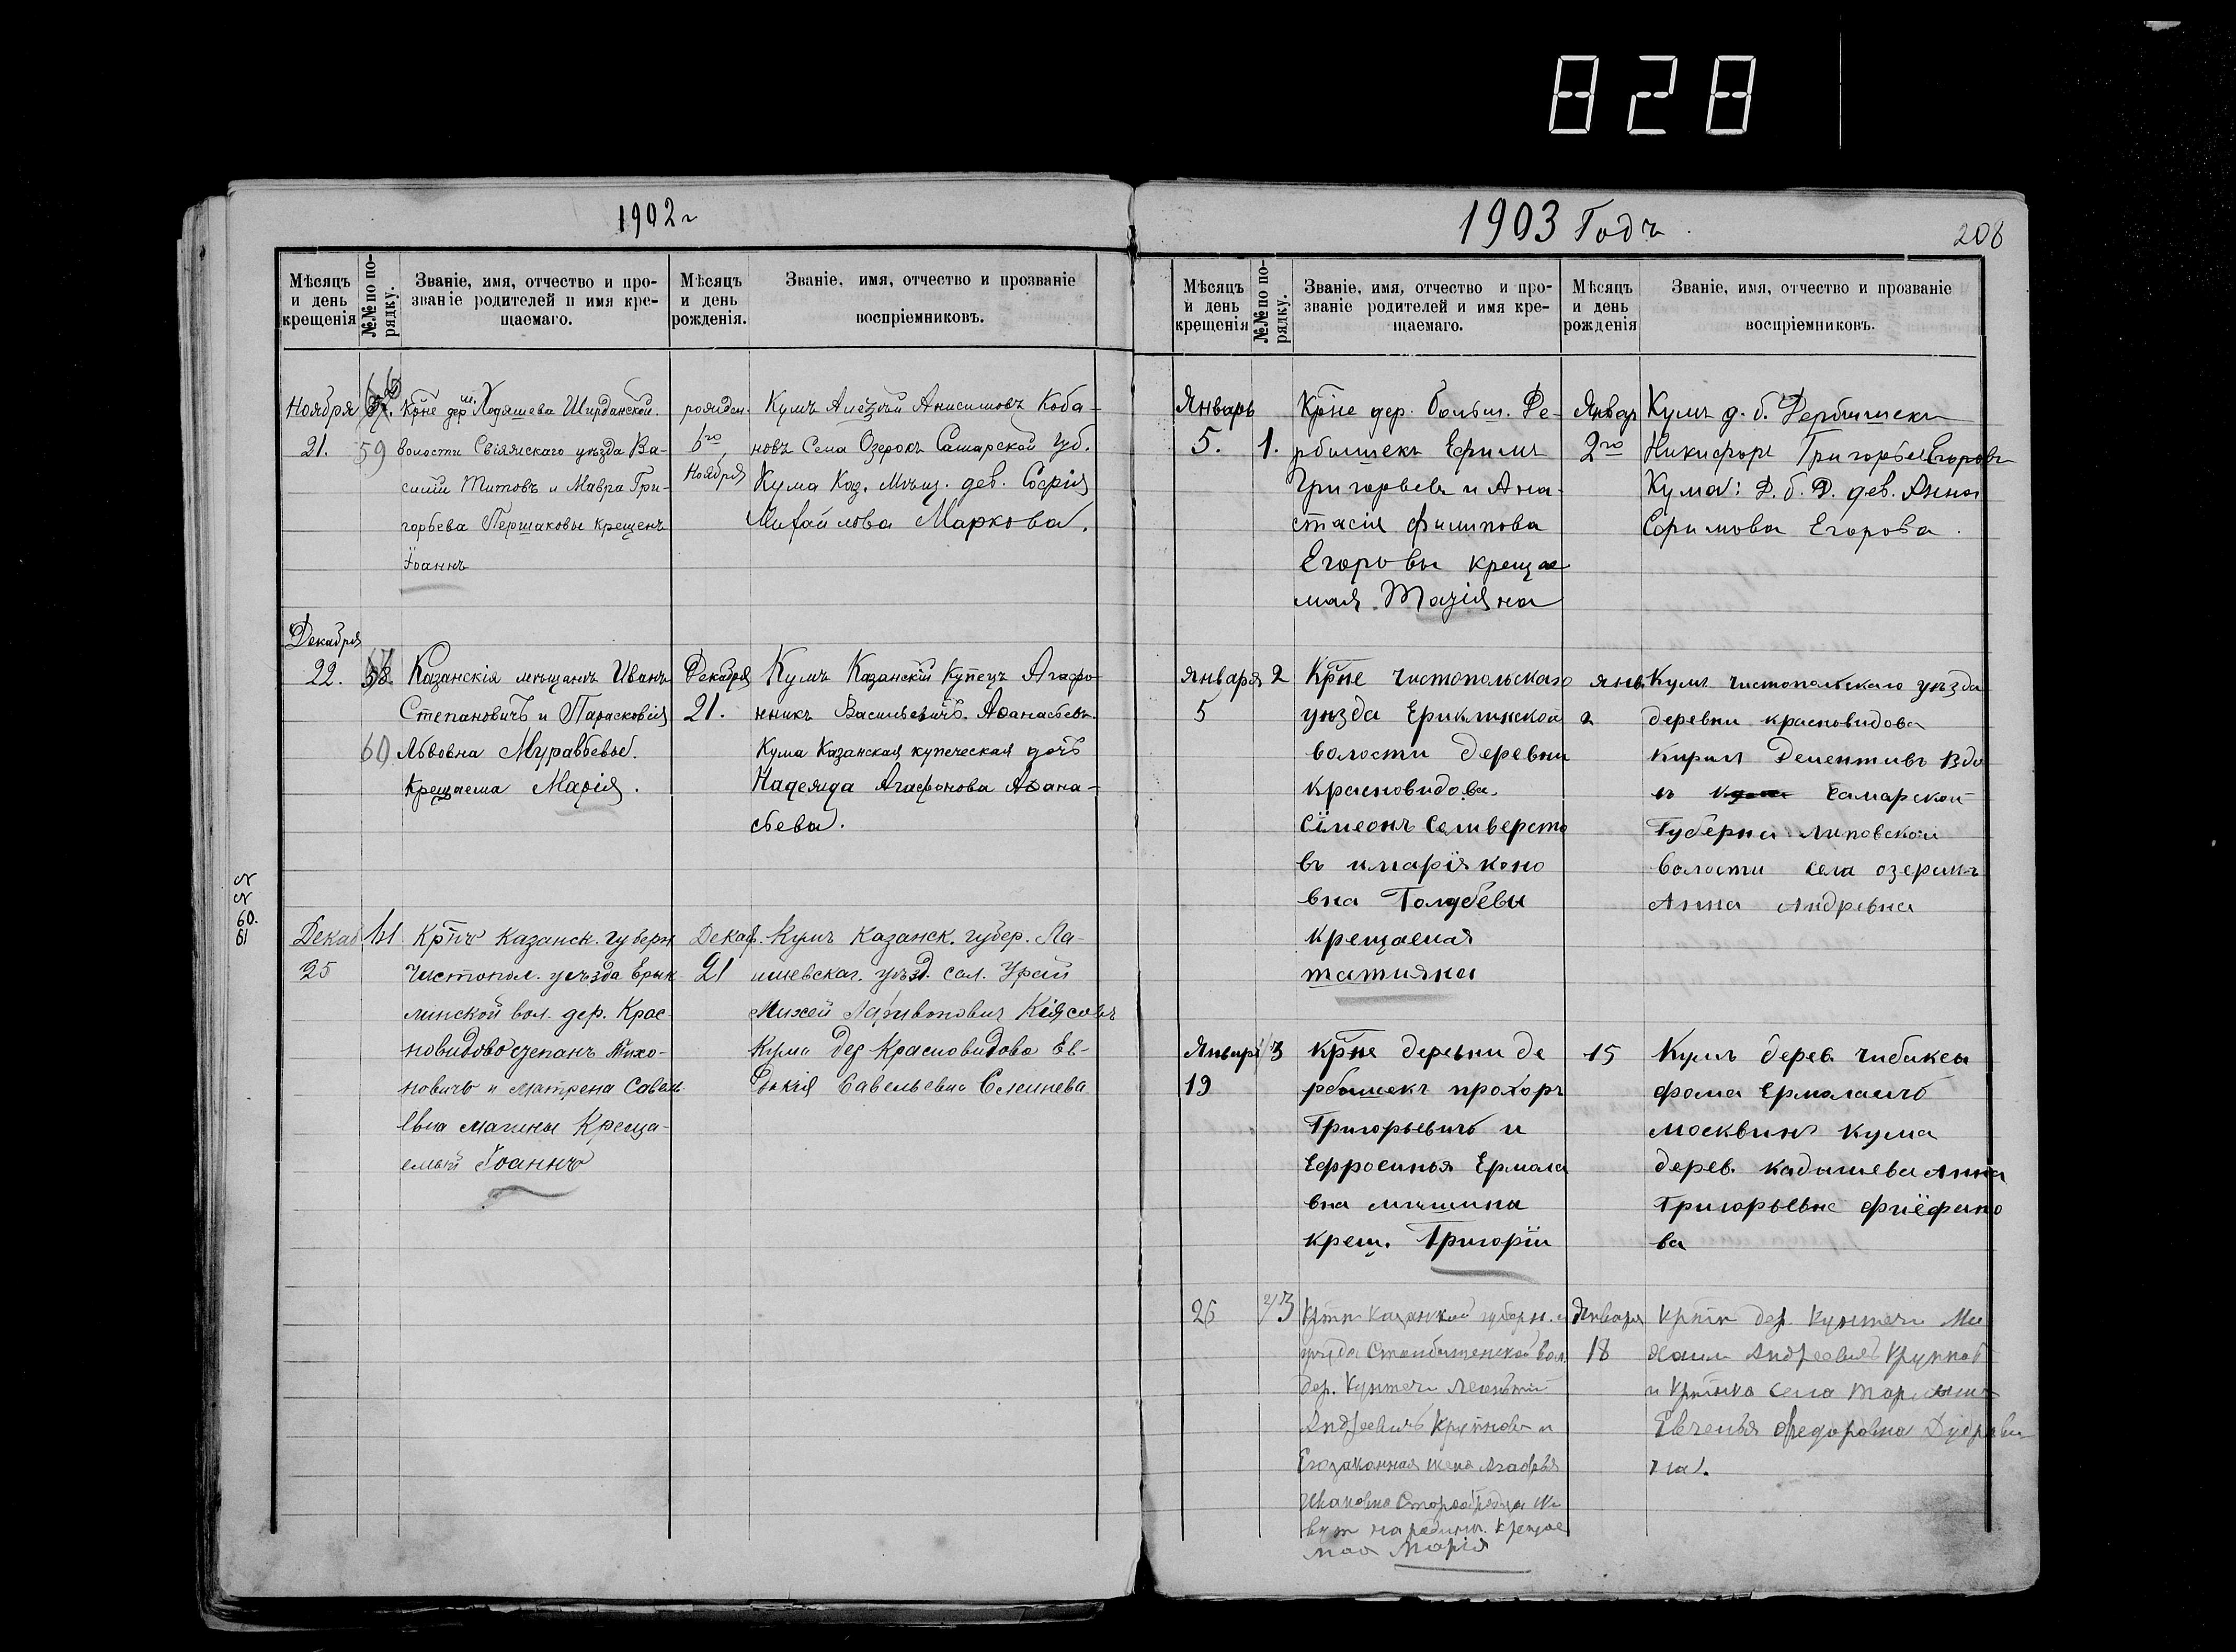 828
1902 г
Мѣсяцъ и день крещенія
№№ по порядку.
Званіе, имя, отчество и прозваніе родителей и имя крещаемаго.
Мѣсяцъ и день рожденія.
Званіе, имя, отчество и прозваніе воспріемниковъ.
Ноября
21.
59
Крне дер. Ходяшева Ширданской
волости Свіяжскаго уѣзда Ва-
силій Титовъ и Мавра Гри-
горьева Першаковы крещенъ
Іоаннъ
рожден.
6го
Ноября
Кумъ Алексѣй Анисимовъ Коба-
новъ Села Озерокъ Самарской Губ.
Кума Каз. Мѣщ. дев. Софія
Михайлова Маркова.
Декабря
22.
60
Казанскія мѣщанъ Иванъ
Степановичъ и Парасковія
Львовна Муравьевы.
Крещаема Марія.
Декабря
21.
Кумъ Казанскій Купецъ Агафо-
нникъ Васильевичъ Аѳанасьевъ.
Кума Казанская купеческая дочь
Надежда Агафонова Аѳана-
сьева.
60.
61
Декаб
25
61
Крпъ Казанск. губерн
Чистопол. уѣзда Ерык
линской вол. дер. Крас-
новидово Степанъ Тихо-
новичъ и Матрена Савель
евна Магины Креща-
емый Іоаннъ
Декаб.
21
Кумъ Казанск. губер. Ла-
ишевскаг. уѣзд. сел. Урай
Кіясовъ
Кума дер Красновидово Ев-
докія Савельевна Слепнева
1903 Годъ
208
Мѣсяцъ и день крещенія
№№ по порядку.
Званіе, имя, отчество и прозваніе родителей и имя крещаемаго.
Мѣсяцъ и день рожденія
Званіе, имя, отчество и прозваніе воспріемниковъ.
Январь
5.
1.
Крне дер. больш. Де-
рбышекъ Ефимъ
Григорьевъ и Ана-
стасія филипова
Егоровы крещае
мая. Татіяна
Январ
2го
Кумъ д. б. Дербишекъ
Никифоръ Григорьев Егоровъ
Кума: Д. б. Д. дев. Анна
Ефимова Егорова.
Января
5
2
Крпе Чистопольскаго
уѣзда Ериклинской
волости деревни
красновидова
Сімеонъ Селиверсто
въ и марія коно
вна Голубевы
крещаемая
татияна
янв.
2
Кумъ Чистопольскаго уѣзда
деревни красновидова
Кирил Дементивъ вдо
въ Самарской
Губерни Липовской
волости села озерикъ
Анна Андревна
Январь
19
3
крпе деревни де
рбышекъ прохоръ
Григорьевичъ и
Ефросинья Ермола
вна мишина
крещ. Григорій
15
Кумъ дерев. чибаксы
фома Ермолаичъ
москвинъ кума
дерев. кадышева Анна
Григорьевна
ва
26
Крпн Казанской губерн.
уѣзда
дер. Куюшечи
Андреевичъ Крупновъ и
Его законная жена Агафья
Ивановна
крещае
мая Марія
Января
18
Крпін дер. Ми
хаилъ Андреевичъ Крупновъ
и села
Евгенья Федоровна